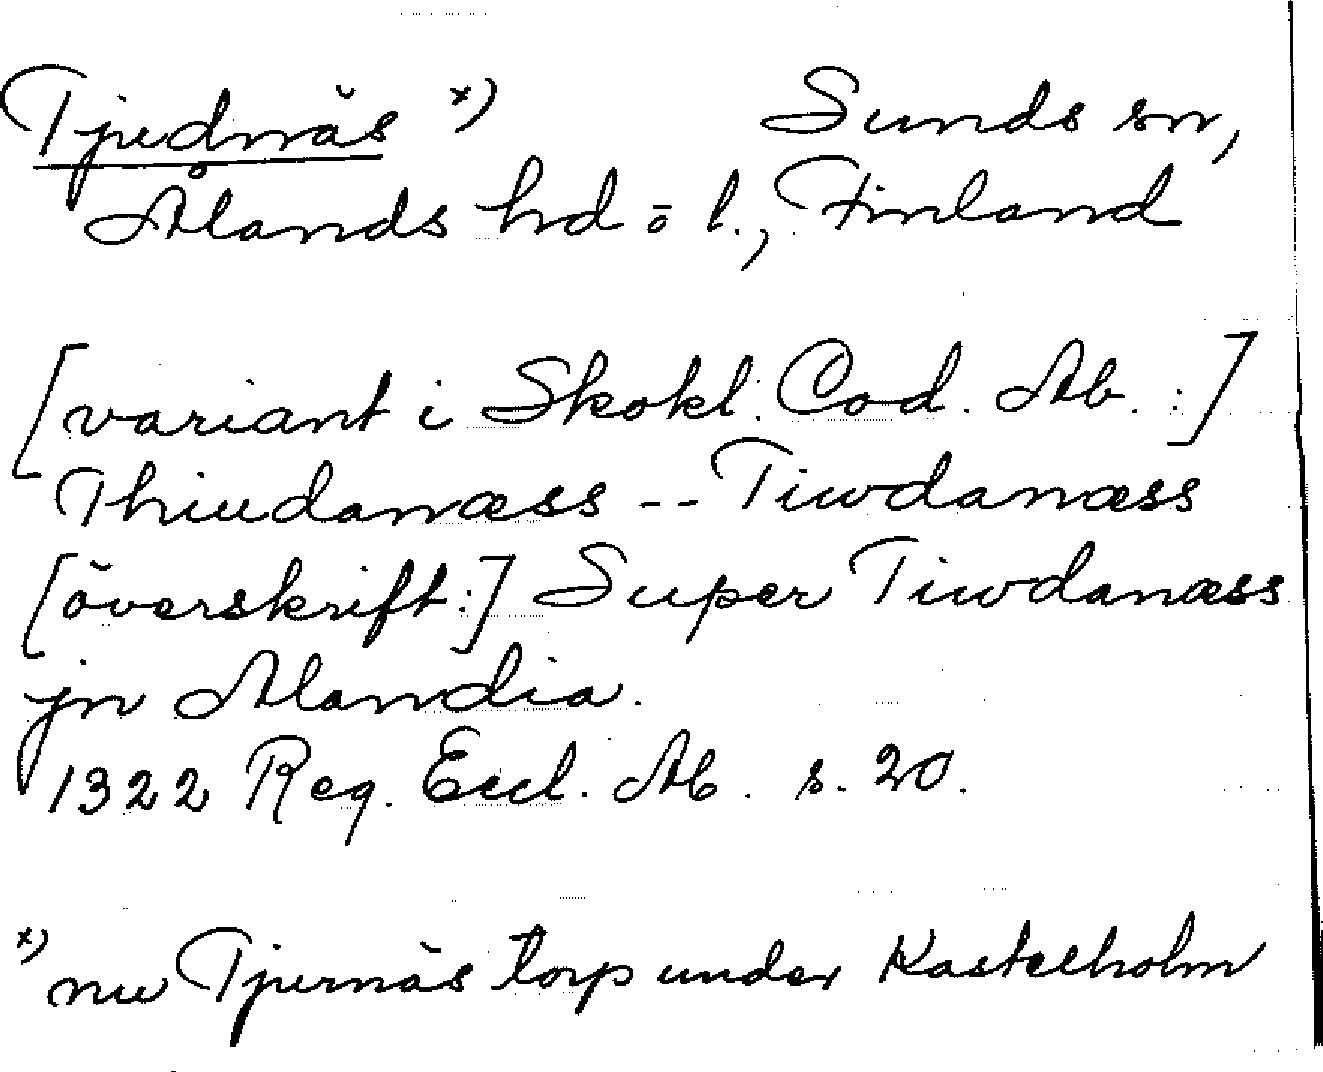 Tjudnäs x) Sunds sn,
Ålands hd o l., Finland
[variant i Skokl. Cod. Ab. :]
Thiudanæss -- Tiwdanæss
[överskrift:] Super Tiwdanæss
jn Alandia.
1322 Reg. Eccl. Ab. s. 20.
x) nu Tjurnäs torp under Kastelholm